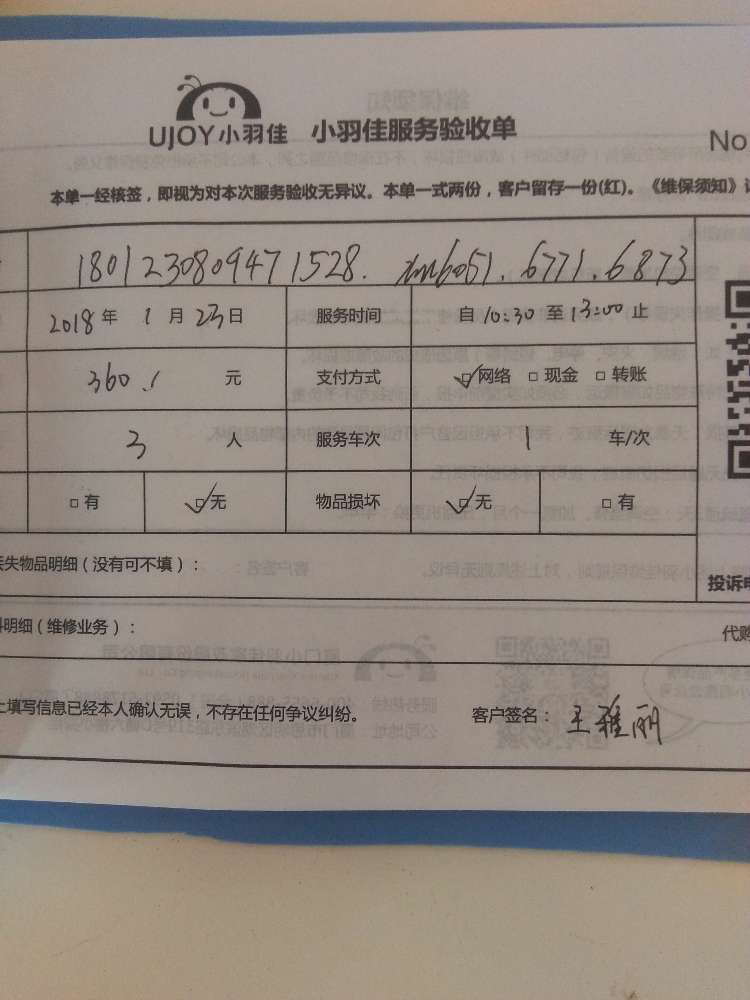 UJOY小羽佳 小羽佳服务验收单
No
本单一经核签，即视为对本次服务验收无异议。本单一式两份，客户留存一份(红)。《维保须知》
1801230809471528. xm6051.6771.6873
2018 年 1 月 23 日 服务时间 自 10:30 至 13:00 止
360.1 元 支付方式 网络 现金 转账
3 人 服务车次 1 车/次
有 无 物品损坏 无 有
失物品明细（没有可不填）：
投诉
明细（维修业务）：
代购
填写信息已经本人确认无误，不存在任何争议纠纷。 客户签名： 王雅丽